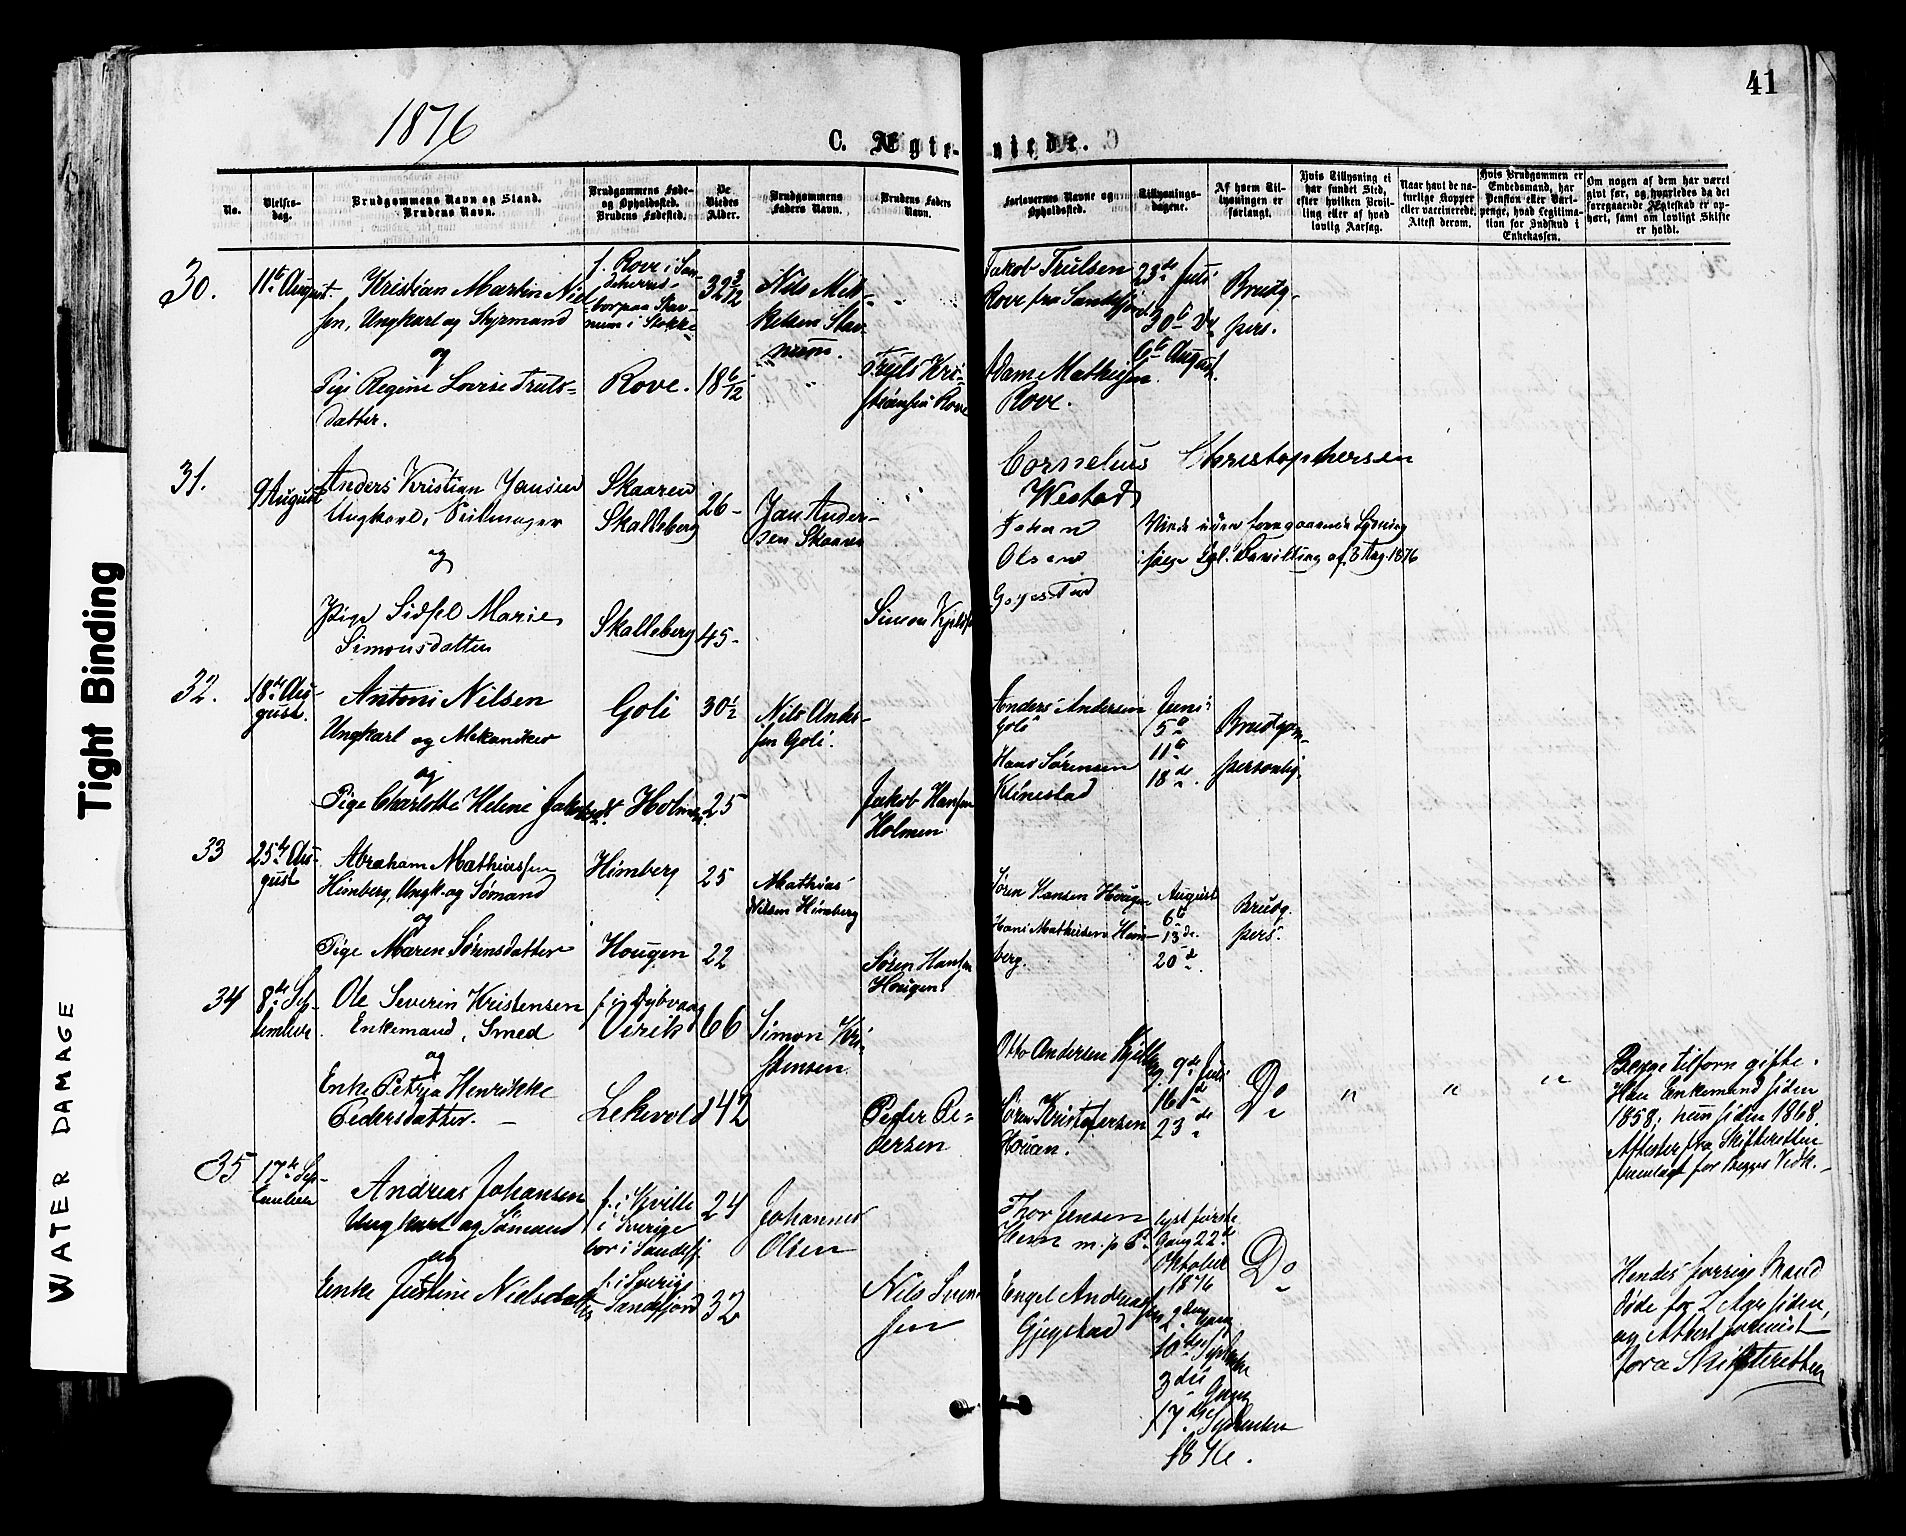 41
1876
C. Ægte-viede.
No.
Vielses-
dag.
Brudgommens Navn og Stand.
Brudens Navn.
Brudgommens Føde-
og Opholdssted.
Brudens Fødested.
De
Viedes
Alder.
Brudgommens
Faders Navn.
Brudens Faders
Navn.
Forlovernes Navne og
Opholdssted.
Tillysnings-
dagene.
Af hvem Til-
lysningen er
forlangt.
Hvis Tillysning ei
har fundet Sted,
efter hvilken Bevil-
ling eller af hvad
lovlig Aarsag.
Naar havt de na-
turlige Kopper
eller vaccinerede,
Attest derom.
Hvis Brudgommen er
Embedsmand, har
Pension eller Vart-
penge, hvad Legitima-
tion for Indskud i
Enkekassen.
Om nogen af dem har været
gift før, og hvorledes da det
foregaaende Ægteskab er op-
hørt, samt om lovligt Skifte
er holdt.
30.
11te August.
Kristian Martin Niel-
sen, Ungkarl og Styrmand
og
Pige Regine Lovise Truls-
datter.
f. Rove i San-
deherred
bor paa Stav-
num i Stokke
Rove.
32 3/12
18 6/12
Nils Mik-
kelsen Stav-
num.
Truls Kri-
stiansen Rove
Jakob Trulsen
Rove fra Sandefjord
Adam Mathisen
Rove.
23de Juli
30te Do
6te August.
Brudg.
pers.
31.
9 August
Anders Kristian Jansen
Ungkarl, Seilmager
og
Pige Sidsel Marie
Simonsdatter
Skaaren
Skalleberg
Skalleberg
26-
45-
Jan Ander-
sen Skaaren
Simon
Cornelius Christophersen
Westad
Johan
Olsen
Viede uden foregaaende Lysning
ifølge Kgl. Bevilling af 3 Aug. 1876
32.
18de Au-
gust.
Antoni Nilsen
Ungkarl og Mekaniker
og
Pige Charlotte Helene Jakobsdt
Goli
Holmen
30 1/2
25
Nils Ander-
sen Goli.
Jakob Hansen
Holmen
Anders Andersen
Goli
Hans Sørensen
Klinestad
Juni
5te
11te
18de.
Brudgom-
personlig.
33
25de Au-
gust
Abraham Mathiassen
Himberg, Ungk. og Sømand
og
Pige Maren Sørensdatter
Himberg
Hougen
25
22
Mathias
Nilsen Himberg
Søren Hansen
Hougen.
Søren Hansen Hougen
Hans Mathisen Him-
berg.
August
6te
13de.
20de.
Brudg.
pers.
34
8de Sep-
tember
Ole Severin Kristensen
Enkemand, Smed
og
Enke Petrea Henrikke
Pedersdatter.
f. i Dybvaag
Virik
Lekvold
66
42
Simon Kri-
stensen
Peder Pe-
dersen
Otto Andersen
Søren Kristofersen
9de Juli
16de
23de
Do
"
"
"
Begge tilforn gifte.
Han Enkemand siden
1858; hun siden 1868.
Attester fra Skifteretten
fremlagt for Begges Vedk.
35
17de Sep-
tember
Andreas Johansen
Ungkarl og Sømand
og
Enke Justine Nielsdatter
f. i Kville
i Sverige
bor i Sandefj.
f. i Sverige
Sandefjord
24
32
Johannes
Olsen
Nils Sven-
sen
Thor Jensen
Hem m. p. P.
Engel Andreassen
Gjegstad
lyst første
Gang 22de
Oktober
1876
2. Gang
10de September
3die
Gang
17de September
1876.
Do
Hendes forrige Mand
døde for 2 Aar siden,
og Attest forevist
fra Skifteretten
Tight Binding
WATER DAMAGE